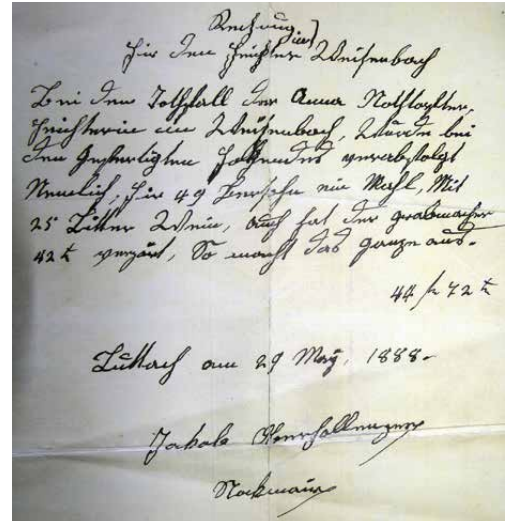 Rechnung
für den Feichter in Weisenbach
Bei dem Tothfall der Anna Nothdurfter,
Feichterin in Weisenbach, Wurde bei
den Gefertigten Folgendes verabfolgt
Nemlich, für 49 Persohn ein Mahl, Mit
25 Litter Wein, auch hat der grabmacher
42 k verzärt, So macht das ganze aus.
44 fl 72 k
Luttach am 29 May, 1888.
Jakob
Stockmair